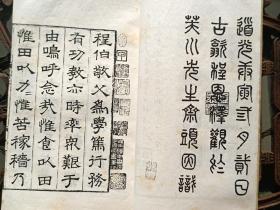 道光辛卯二月貳日
古歙程恩澤觀於
芙川先生齋頭因識
程伯敬父為學篤行務
有功數亦時率艱于
由嗚呼念我惟食以田
惟田以力惟苦稼穡乃